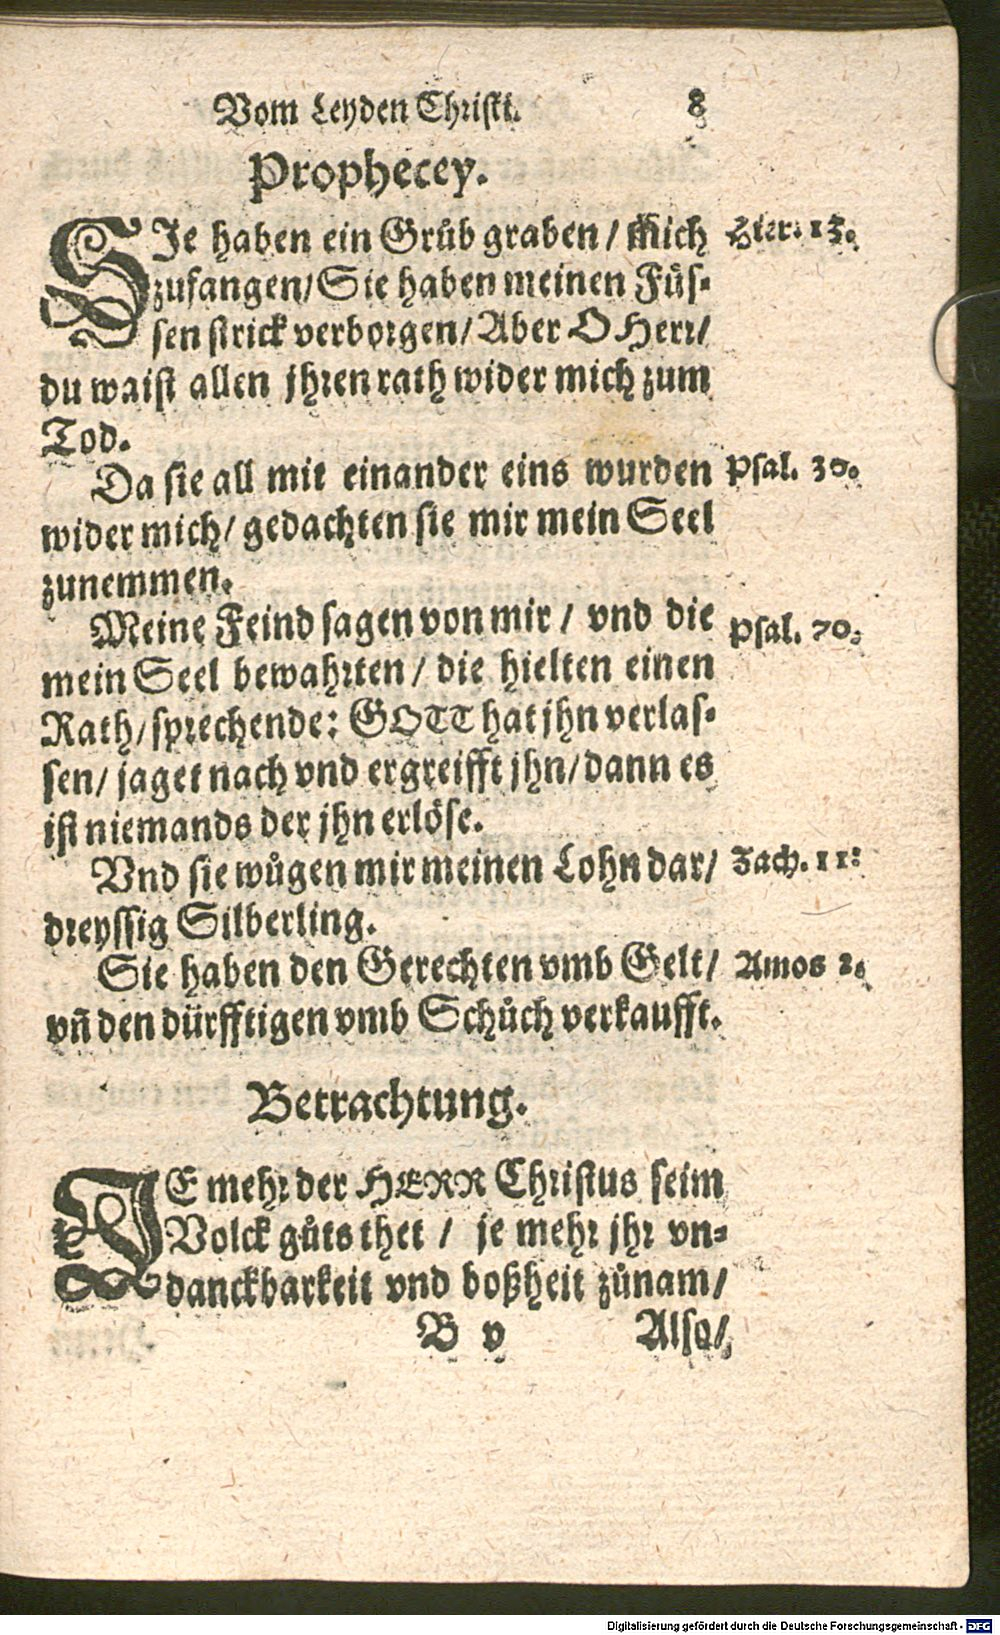 Vom Leyden Christi. 8
Prophecey.
SJe haben ein Grůb graben / Mich Hier. 13.
zufangen / Sie haben meinen Füs-
sen strick verborgen / Aber O Herr /
du waist allen jhren rath wider mich zum
Tod.
Da sie all mit einander eins wurden Psal. 30.
wider mich / gedachten sie mir mein Seel
zunemmen.
Meine Feind sagen von mir / vnd die Psal. 70.
mein Seel bewahrten / die hielten einen
Rath / sprechende: GOTT hat jhn verlas-
sen / jaget nach vnd ergreifft jhn / dann es
ist niemands der jhn erlöse.
Vnd sie wůgen mir meinen Lohn dar / Zach. 11.
dreyssig Silberling.
Sie haben den Gerechten vmb Gelt / Amos 2.
vñ den dürfftigen vmb Schůch verkaufft.
Betrachtung.
JE mehr der HERR Christus seim
Volck gůts thet / je mehr jhr vn-
danckbarkeit vnd boßheit zůnam /
B v Also /
Digitalisierung gefördert durch die Deutsche Forschungsgemeinschaft - DFG